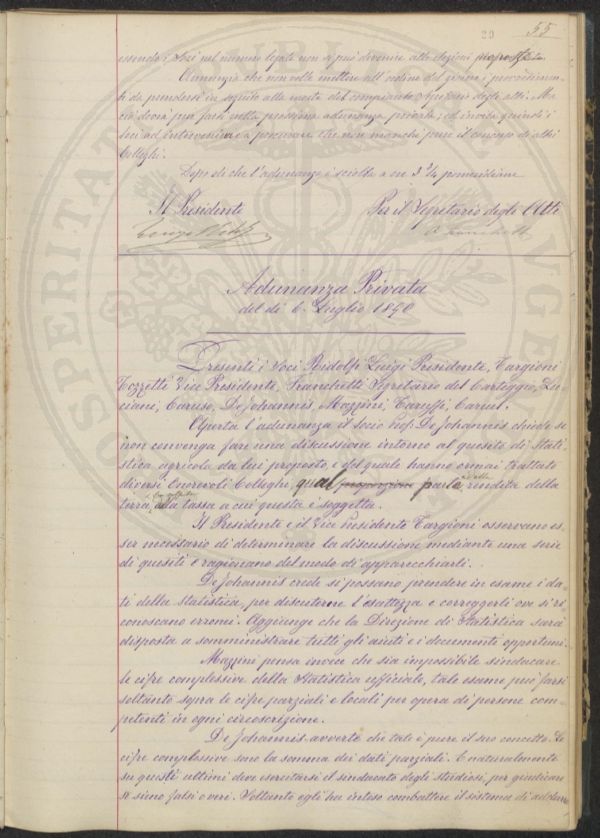 20 55
essendo i Soci nel numero legale non si può divenire alle elezioni proposte.
Annunzia che non volle mettere all'ordine del giorno i provvedimen-
ti da prendersi in seguito alla morte del compianto Segretario degli atti. Ma
ciò dovrà pur farsi nella prossima adunanza privata; ed invita quindi i
Soci ad intervenire e a procurare che non manchi pure il concorso di altri
Colleghi.
Dopo di che l'adunanza è sciolta a ore 3 3/4 pomeridiane
Il Presidente Per il Segretario degli Atti
Luigi Ridolfi Franchetti
Adunanza Privata
del dì 6. Luglio 1890
Presenti i Soci Ridolfi Luigi Presidente, Targioni
Tozzetti Vice Presidente, Franchetti Segretario del Carteggio, Lu-
ciani, Caruso, De Johannis, Mazzini, Caruel.
Aperta l'adunanza il socio Prof. De Johannis chiede se
non convenga fare una discussione intorno al quesito di Stati-
stica agricola da lui proposto, e del quale hanno ormai trattato
diversi Onorevoli Colleghi, qual proporzione parte rendita della
terra, alla tassa a cui questa è soggetta.
Il Presidente e il Vice Presidente Targioni osservano es-
ser necessario di determinare la discussione mediante una serie
di quesiti e ragionano del modo di apparecchiarli.
De Johannis crede si possano prendere in esame i da-
ti della Statistica, per discuterne l'esattezza e correggerli ove si ri-
conoscano erronei. Aggiunge che la Direzione di Statistica sarà
disposta a somministrare tutti gli aiuti e i documenti opportuni.
Mazzini pensa invece che sia impossibile sindacare
le cifre complessive della Statistica ufficiale, tale esame può farsi
soltanto sopra le cifre parziali e locali per opera di persone com-
petenti in ogni circoscrizione.
De Johannis avverte che tale è pure il suo concetto. Le
cifre complessive sono la somma dei dati parziali. E naturalmente
su questi ultimi deve esercitarsi il sindacato degli studiosi, per giudicare
se sieno falsi o veri. Soltanto egli ha inteso combattere il sistema di